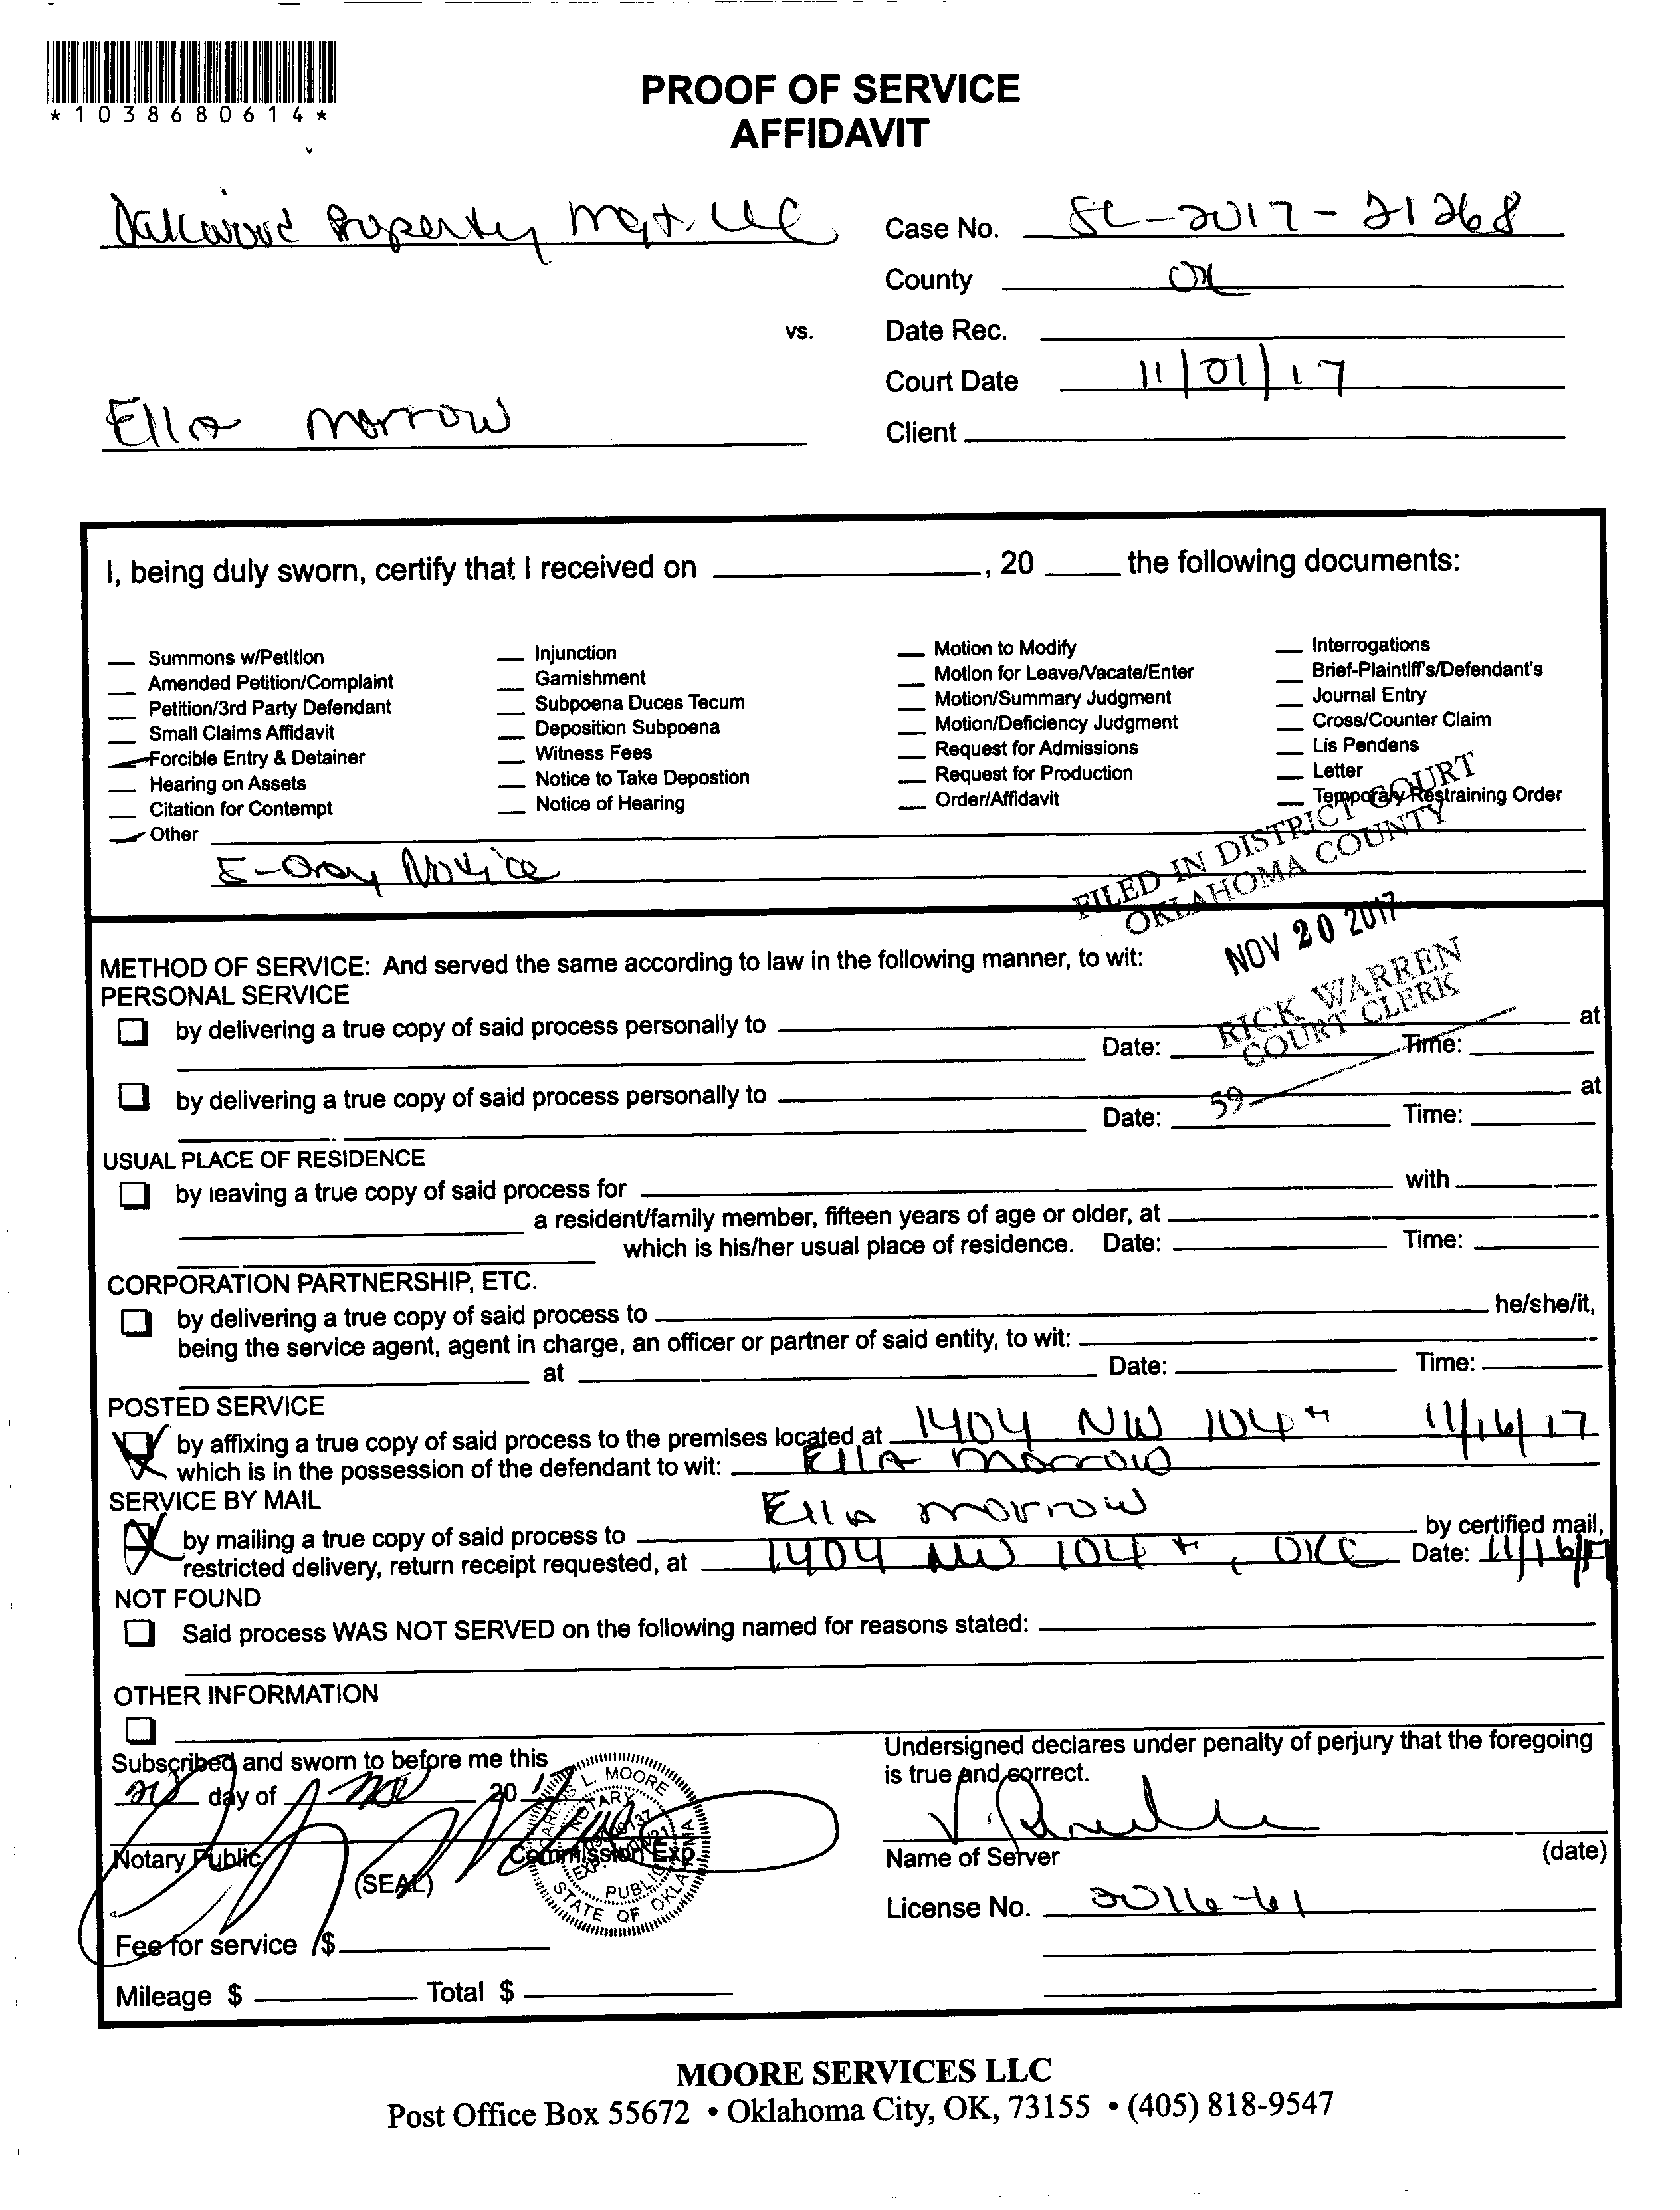 *1038680614*
PROOF OF SERVICE
AFFIDAVIT
Property Mgt. LLC
Case No. SC-2017-21268
County OK
vs. Date Rec.
Court Date 11/01/17
Ella Morrow
Client
I, being duly sworn, certify that I received on , 20 the following documents:
Summons w/Petition
Amended Petition/Complaint
Petition/3rd Party Defendant
Small Claims Affidavit
Forcible Entry & Detainer
Hearing on Assets
Citation for Contempt
Other
Injunction
Garnishment
Subpoena Duces Tecum
Deposition Subpoena
Witness Fees
Notice to Take Depostion
Notice of Hearing
Motion to Modify
Motion for Leave/Vacate/Enter
Motion/Summary Judgment
Motion/Deficiency Judgment
Request for Admissions
Request for Production
Order/Affidavit
Interrogations
Brief-Plaintiff's/Defendant's
Journal Entry
Cross/Counter Claim
Lis Pendens
Letter
Temporary Restraining Order
5-Day Notice
FILED IN DISTRICT COURT
OKLAHOMA COUNTY
NOV 20 2017
RICK WARREN
COURT CLERK
59
METHOD OF SERVICE: And served the same according to law in the following manner, to wit:
PERSONAL SERVICE
by delivering a true copy of said process personally to at
Date: Time:
by delivering a true copy of said process personally to at
Date: Time:
USUAL PLACE OF RESIDENCE
by leaving a true copy of said process for with
a resident/family member, fifteen years of age or older, at
which is his/her usual place of residence. Date: Time:
CORPORATION PARTNERSHIP, ETC.
by delivering a true copy of said process to he/she/it,
being the service agent, agent in charge, an officer or partner of said entity, to wit:
at Date: Time:
POSTED SERVICE
by affixing a true copy of said process to the premises located at 1404 NW 104th 11/16/17
which is in the possession of the defendant to wit: Ella Morrow
SERVICE BY MAIL
by mailing a true copy of said process to Ella Morrow by certified mail,
restricted delivery, return receipt requested, at 1404 NW 104th, OKC Date: 11/16/17
NOT FOUND
Said process WAS NOT SERVED on the following named for reasons stated:
OTHER INFORMATION
Subscribed and sworn to before me this
day of Nov 2017
Notary Public
(SEAL)
Commission Exp.
CARLOS L. MOORE
NOTARY
PUBLIC
STATE OF OKLAHOMA
Fee for service $
Mileage $ Total $
Undersigned declares under penalty of perjury that the foregoing
is true and correct.
Name of Server (date)
License No. 2016-61
MOORE SERVICES LLC
Post Office Box 55672 • Oklahoma City, OK, 73155 • (405) 818-9547